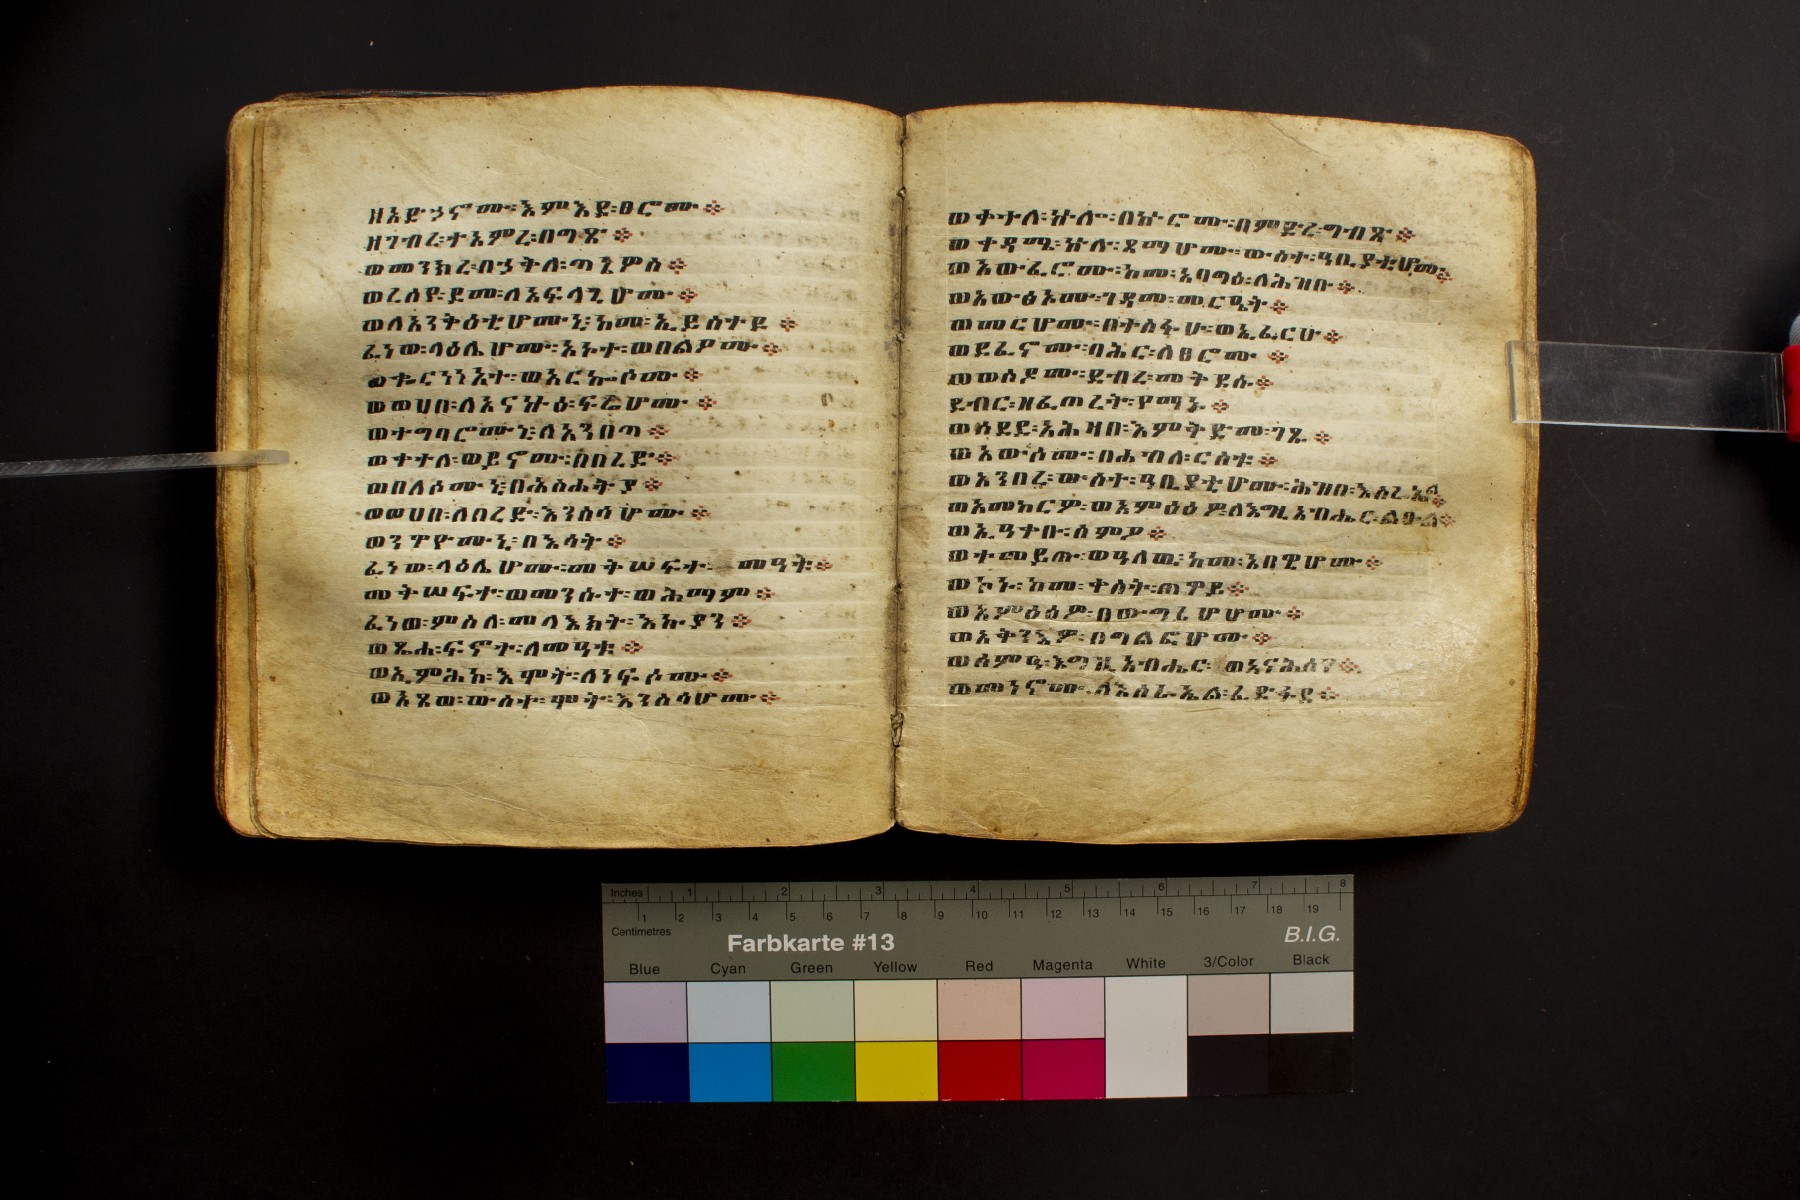 ዘአድኃኖሙ፡እምእደ፡ፀሮሙ፨
ዘገብረ፡ተአምረ፡በግጽ፨
ወመንክረ፡በኃቅለ፡ጣኔዎስ፨
ወረሰየ፡ደመ፡ለአፍላጊሆሙ፨
ወለአንቅዕቲሆሙኒ፡ከመ፡ኢይስተዩ፨
ፈነወ፡ላዕሌሆሙ፡አኮተ፡ወበልዖሙ፨
ወቈርነነዓተ፡ወአርኰሶሙ፨
ወወሀበ፡ለአናኵዕ፡ፍሬሆሙ፨
ወተግባሮሙኒ፡ለአንበጣ፨
ወቀተለ፡ወይኖሙ፡በበረድ፨
ወበለሶሙኒ፡በአስሐትያ፨
ወወሀበ፡ለበረድ፡እንስሳሆሙ፨
ወንዋዮሙኒ፡በእሳት፨
ፈነወ፡ላዕሌሆሙ፡መቅሠፍተ፡ መዓቱ፨
መቅሠፍተ፡ወመንሱተ፡ወሕማም፨
ፈነወ፡ምስለ፡መላእክት፡እኩያን፨
ወጼሐ፡ፍኖተ፡ለመዓቱ፨
ወኢምሕከ፡እሞት፡ለነፍሶሙ፨
ወአጸወ፡ውስተ፡ሞት፡እንስሳሆሙ፨
ወቀተለ፡ኵሎ፡በኵሮሙ፡በምድረ፡ግብጽ፨
ወቀዳሜ፡ኵሉ፡ጻማሆሙ፡ውስተ፡ዓቢያቲሆሙ፨
ወአውፈሮሙ፡ከመ፡አባግዕ፡ለሕዝቡ፨
ወአውፅኦሙ፡ገዳመ፡መርዔት፨
ወመርሆሙ፡በተስፋሁ፡ወኢፈርሁ፨
ወደፈኖሙ፡ባሕር፡ለፀሮሙ፨
ወወሰዶሙ፡ደብረ፡መቅደሱ፨
ደብር፡ዘፈጠረት፡የማኑ፨
ወሰደደ፡አሕዛበ፡እምቅድመ፡ገጹ፨
ወአውረሶሙ፡በሐብለ፡ርስቱ፨
ወአንበረ፡ውስተ፡ዓቢያቲሆሙ፡ሕዝበ፡እስራኤል፨
ወአመከርዎ፡ወአምዕዕዎ፡ለእግዚአብሔር፡ልዑል፨
ወኢዓቀቡ፡ስምዖ፨
ወተመይጡ፡ወዓለዉ፡ከመ፡አበዊሆሙ፨
ወኮኑ፡ከመ፡ቀስት፡ጠዋይ፨
ወአምዕዕዎ፡በውግረሆሙ፨
ወአቅንእዎ፡በግልፎሆሙ፨
ወሰምዓ፡እግዚአብሔር፡ወአናሕሰየ፨
ወመነኖሙ፡ለእስራኤል፡ፈድፋደ፨